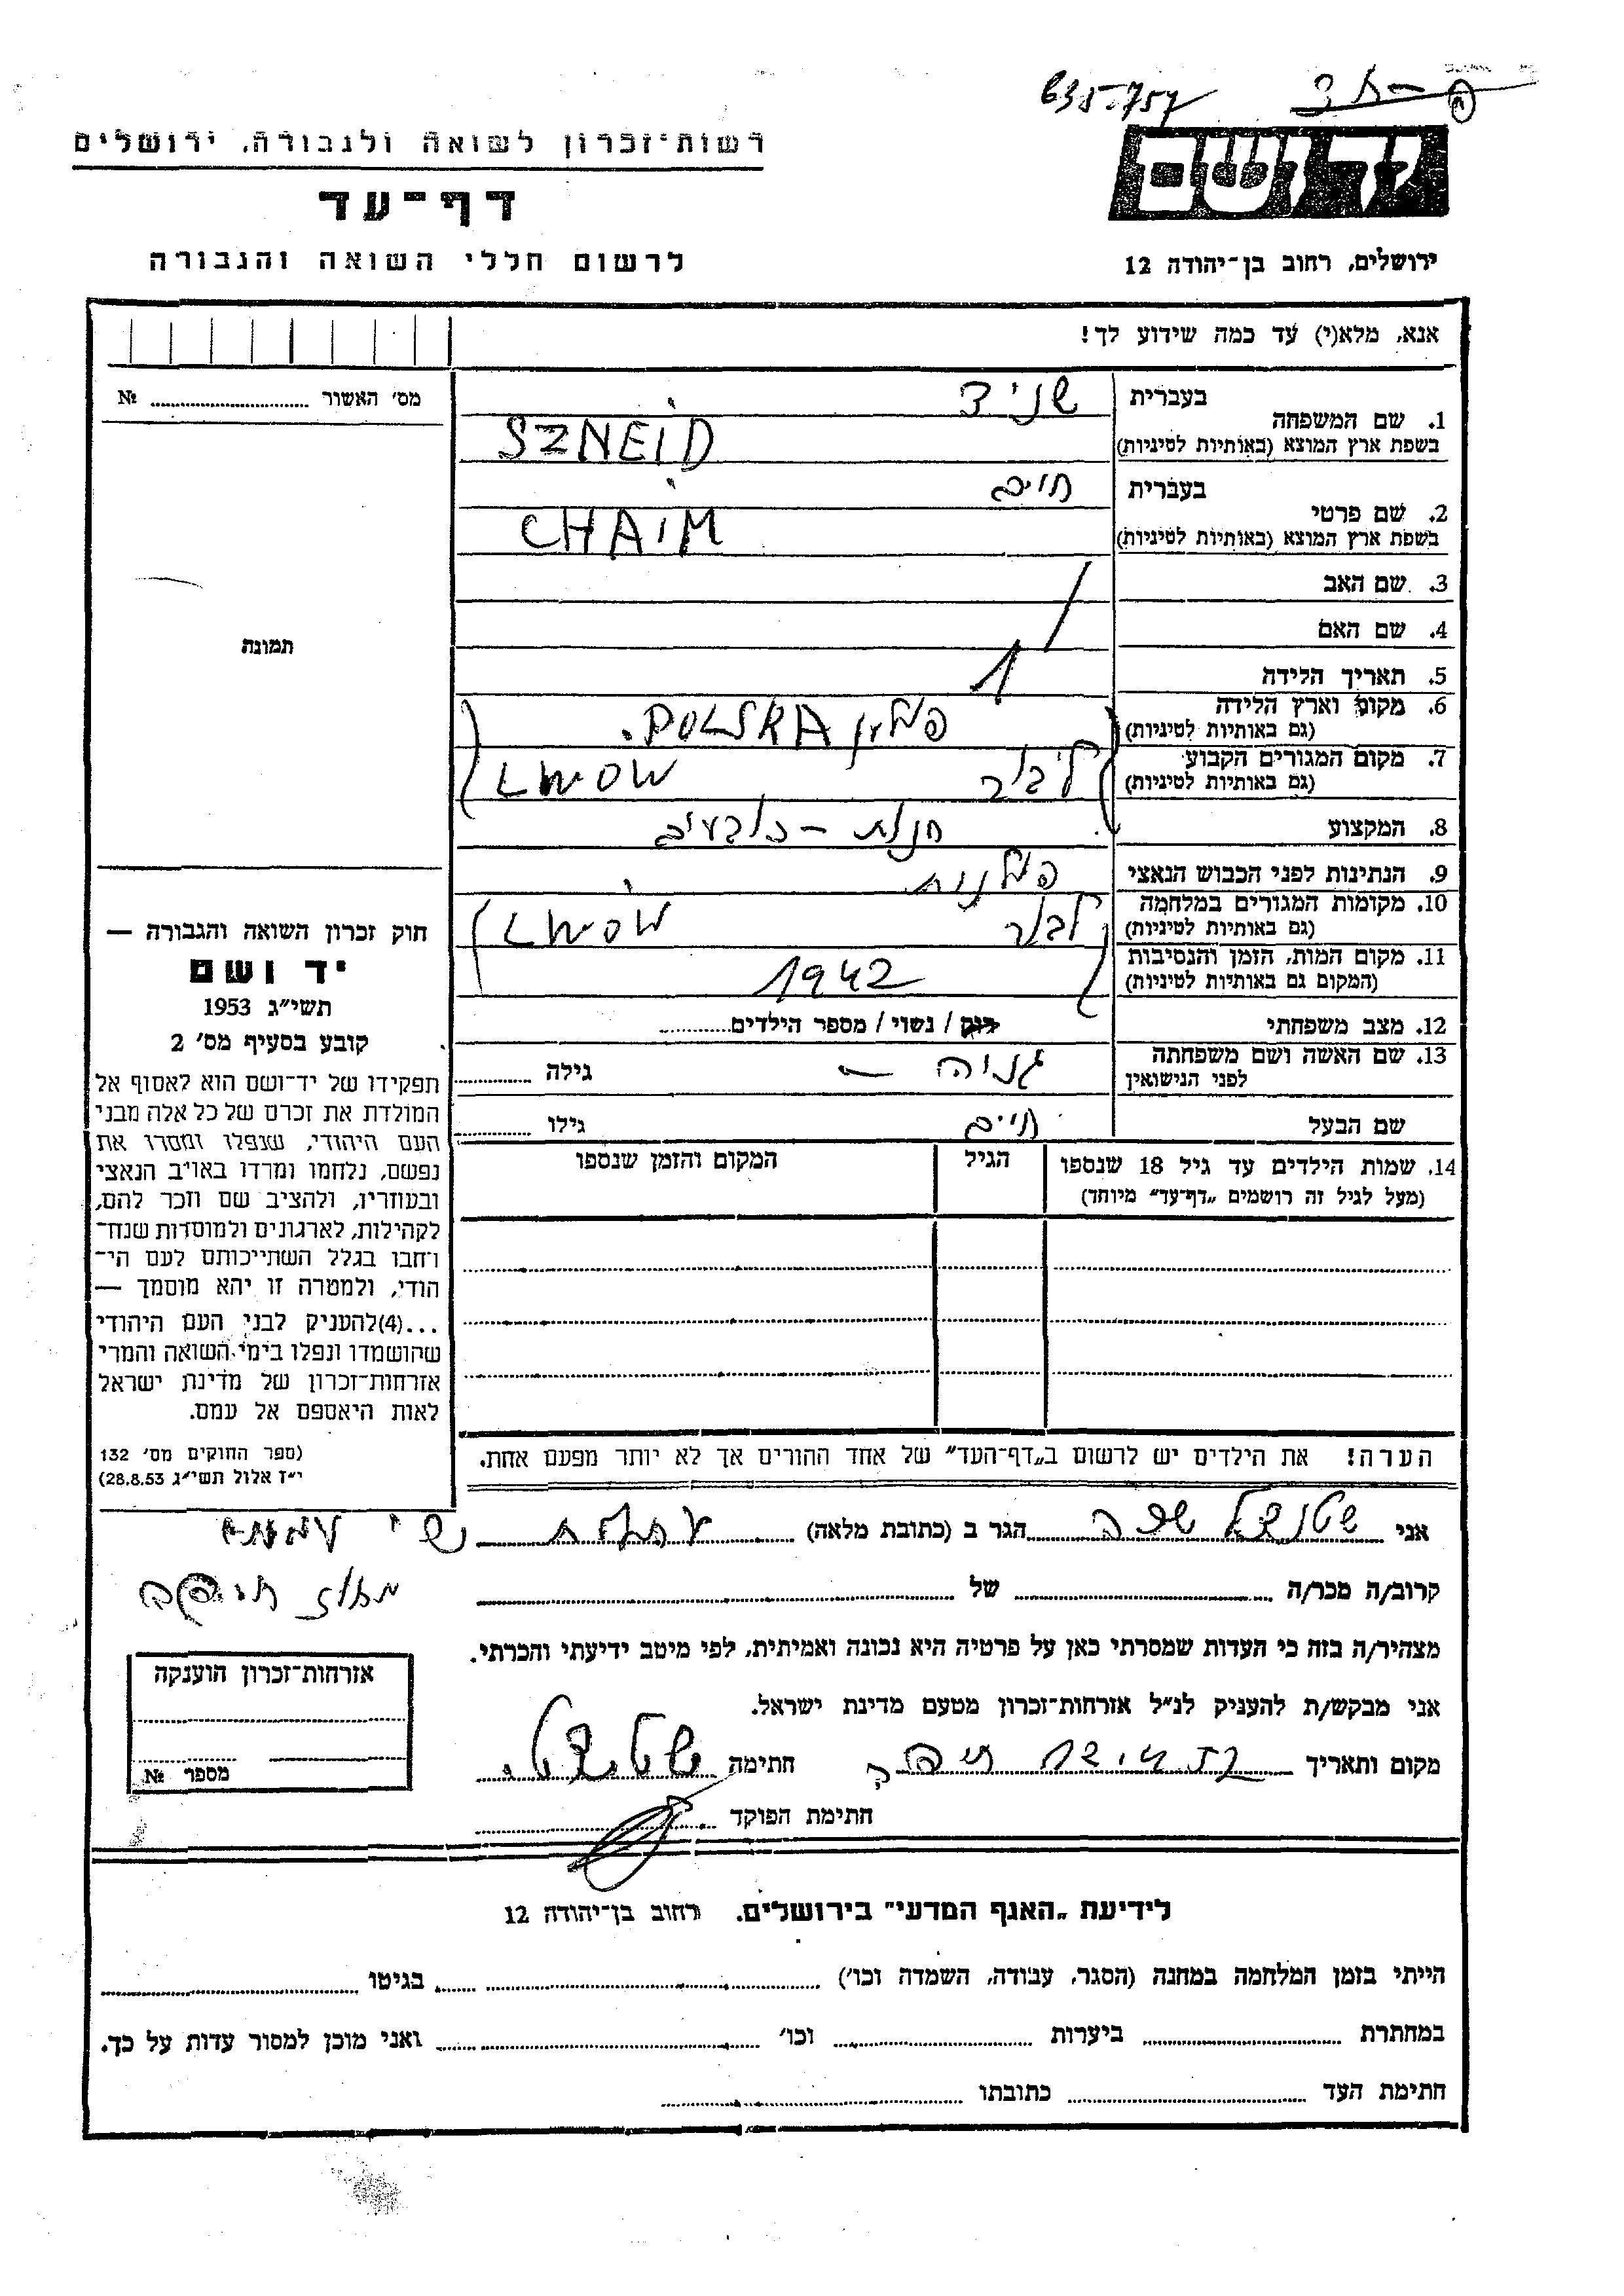 635-757
רשות־זכרון לשואה ולגבורה, ירושלים
דף־עד
לרשום חללי השואה והגבורה
יד ושם
ירושלים, רחוב בן־יהודה 12
אנא, מלא(י) עד כמה שידוע לך!
מס׳ האשור № 
1. שם המשפחה בעברית שנייד
בשפת ארץ המוצא (באותיות לטיניות) SZNEID
2. שם פרטי בעברית חיים
בשפת ארץ המוצא (באותיות לטיניות) CHAIM
3. שם האב
4. שם האם
5. תאריך הלידה
6. מקום וארץ הלידה (גם באותיות לטיניות) פולין POLSKA.
7. מקום המגורים הקבוע (גם באותיות לטיניות) לבוב LWOW
8. המקצוע חנות
9. הנתינות לפני הכבוש הנאצי פולנית
10. מקומות המגורים במלחמה (גם באותיות לטיניות) לבוב LWOW
11. מקום המות, הזמן והנסיבות (המקום גם באותיות לטיניות) 1942
12. מצב משפחתי רווק / נשוי / מספר הילדים
13. שם האשה ושם משפחתה לפני הנישואין גניה – גילה
שם הבעל חיים גילו
14. שמות הילדים עד גיל 18 שנספו (מעל לגיל זה רושמים „דף־עד״ מיוחד) הגיל המקום והזמן שנספו
הערה! את הילדים יש לרשום ב„דף־העד״ של אחד ההורים אך לא יותר מפעם אחת.
תמונה
חוק זכרון השואה והגבורה —
יד ושם
תשי״ג 1953
קובע בסעיף מס׳ 2
תפקידו של יד־ושם הוא לאסוף אל
המולדת את זכרם של כל אלה מבני
העם היהודי, שנפלו ומסרו את
נפשם, נלחמו ומרדו באויב הנאצי
ובעוזריו, ולהציב שם וזכר להם,
לקהילות, לארגונים ולמוסדות שנח־
רחבו בגלל השתייכותם לעם הי־
הודי, ולמטרה זו יהא מוסמך —
...(4)להעניק לבני העם היהודי
שהושמדו ונפלו בימי השואה והמרי
אזרחות־זכרון של מדינת ישראל
לאות היאספם אל עמם.
(ספר החוקים מס׳ 132
י״ז אלול תשי״ג 28.8.53)
אני הגר ב (כתובת מלאה)
מעוז חיפה
קרוב/ה מכר/ה של
מצהיר/ה בזה כי העדות שמסרתי כאן על פרטיה היא נכונה ואמיתית, לפי מיטב ידיעתי והכרתי.
אני מבקש/ת להעניק לנ״ל אזרחות־זכרון מטעם מדינת ישראל.
מקום ותאריך חתימה
חתימת הפוקד
אזרחות־זכרון הוענקה
מספר №
לידיעת „האגף המדעי״ בירושלים, רחוב בן־יהודה 12
הייתי בזמן המלחמה במחנה (הסגר, עבודה, השמדה וכו׳) בגיטו
במחתרת ביערות וכו׳ ואני מוכן למסור עדות על כך.
חתימת העד כתובתו